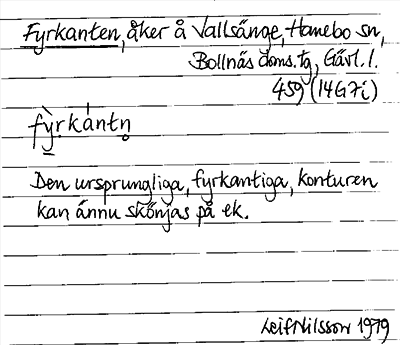 Fyrkanten, åker å Vallsänge, Hanebo sn,
Bollnäs doms. tg, Gävl. l.
459 (14G7i)
fỳ̠rkàntn̥
Den ursprungliga, fyrkantiga, konturen
kan ännu skönjas på ek.
Leif Nilsson 1979